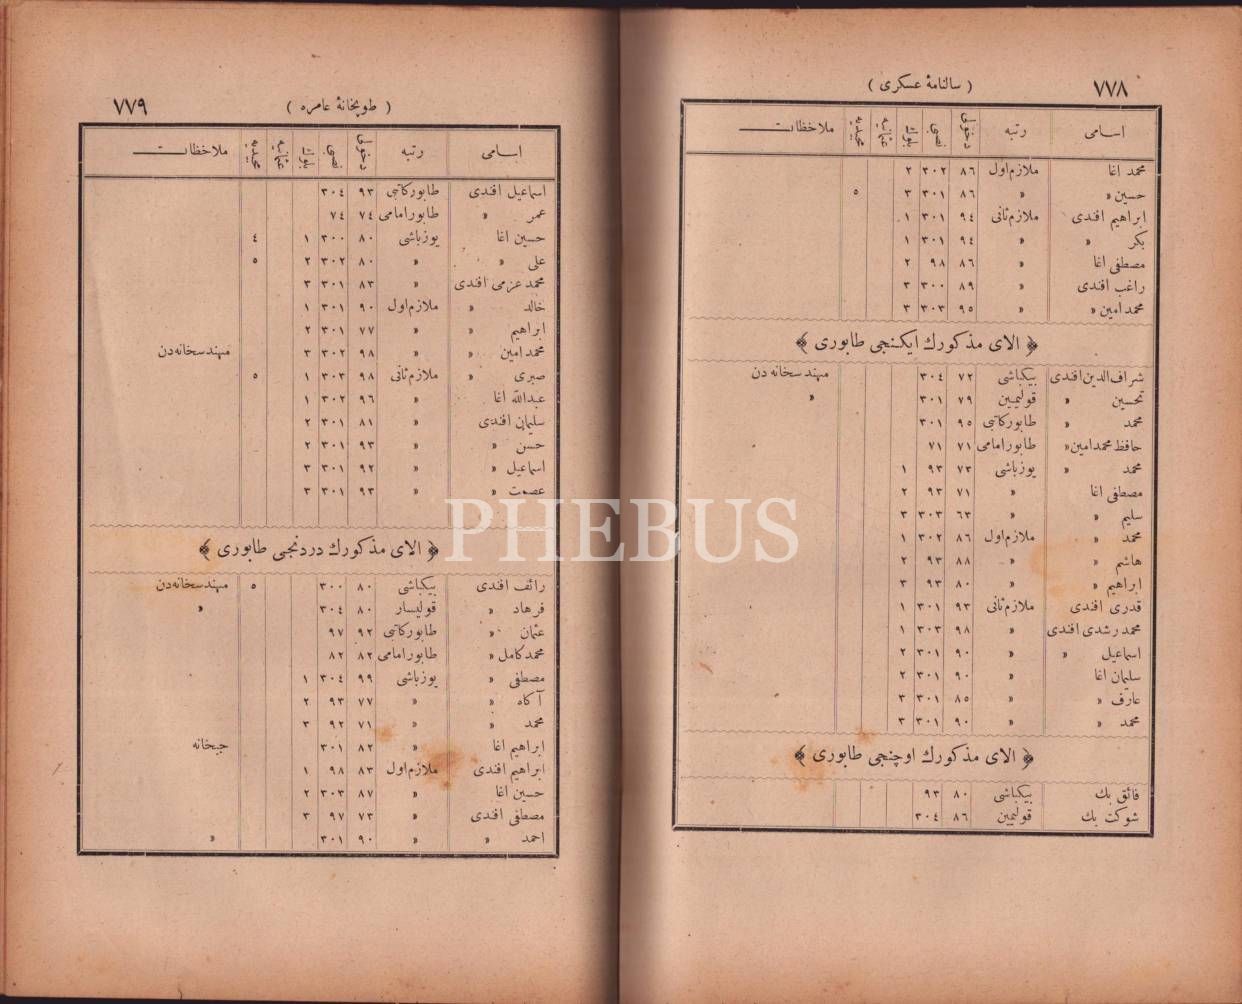 ٧٧٨
( سالنامهٔ عسكری )
اسامی رتبه دخولی نصبی بلوك عثمانیه مجیدیه ملاحظات
محمد اغا ملازم اول ٨٦ ٣٠٢ ٢
حسین » » ٨٦ ٣٠١ ٣ ٥
ابراهیم افندی ملازم ثانی ٩٤ ٣٠١ ١
بكر » » ٩٤ ٣٠١ ١
مصطفی اغا » ٨٦ ٩٨ ٢
راغب افندی » ٨٩ ٣٠٠ ٣
محمد امین » » ٩٥ ٣٠٣ ٣
﴿ الای مذكورك ایكنجی طابوری ﴾
شراف الدین افندی بیكباشی ٧٢ ٣٠٤ مهندسخانه دن
تحسین » قولیمین ٧٩ ٣٠١ »
محمد » طابوركاتبی ٩٥ ٣٠١
حافظ محمد امین » طابورامامی ٧١ ٧١
محمد » یوزباشی ٧٣ ٩٣ ١
مصطفی اغا » ٧١ ٩٣ ٢
سلیم » » ٦٣ ٣٠٣ ٣
محمد » ملازم اول ٨٦ ٣٠٢ ١
هاشم » » ٨٨ ٩٣ ٢
ابراهیم » » ٨٠ ٩٣ ٣
قدری افندی ملازم ثانی ٩٣ ٣٠١ ١
محمد رشدی افندی » ٩٨ ٣٠٣ ١
اسماعیل » » ٩٠ ٣٠١ ٢
سلیمان اغا » ٩٠ ٣٠١ ٢
عارف » » ٨٥ ٣٠١ ٣
محمد » » ٩٠ ٣٠١ ٣
﴿ الای مذكورك اوچنجی طابوری ﴾
فائق بك بیكباشی ٨٠ ٩٣
شوكت بك قولیمین ٨٦ ٣٠٤
٧٧٩
( طوپخانهٔ عامره )
اسامی رتبه دخولی نصبی بلوك عثمانیه مجیدیه ملاحظات
اسماعیل افندی طابوركاتبی ٩٣ ٣٠٤
عمر » طابورامامی ٧٤ ٧٤
حسین اغا یوزباشی ٨٠ ٣٠٠ ١ ٤
علی » » ٨٠ ٣٠٢ ٢ ٥
محمد عزمی افندی » ٨٣ ٣٠١ ٣
خالد » ملازم اول ٩٠ ٣٠١ ١
ابراهیم » » ٧٧ ٣٠١ ٢
محمد امین » » ٩٨ ٣٠٢ ٣ مهندسخانه دن
صبری » ملازم ثانی ٩٨ ٣٠٣ ١ ٥
عبدالله اغا » ٩٦ ٣٠٢ ١
سلیمان افندی » ٨١ ٣٠١ ٢
حسن » » ٩٣ ٣٠١ ٢
اسماعیل » » ٩٢ ٣٠١ ٣
عصمت » » ٩٣ ٣٠١ ٣
﴿ الای مذكورك دردنجی طابوری ﴾
رائف افندی بیكباشی ٨٠ ٣٠٠ ٥ مهندسخانه دن
فرهاد » قولیسار ٨٠ ٣٠٤ »
عثمان » طابوركاتبی ٩٢ ٩٧
محمد كامل » طابورامامی ٨٢ ٨٢
مصطفی » یوزباشی ٩٩ ٣٠٤ ١
آكاه » » ٧٧ ٩٣ ٢
محمد » » ٧١ ٩٢ ٣
ابراهیم اغا » ٨٢ ٣٠١ جبخانه
ابراهیم افندی ملازم اول ٨٣ ٩٨ ١
حسین اغا » ٨٧ ٣٠٣ ٢
مصطفی افندی » ٧٣ ٩٧ ٣
احمد » » ٩٠ ٣٠١ »
PHEBUS